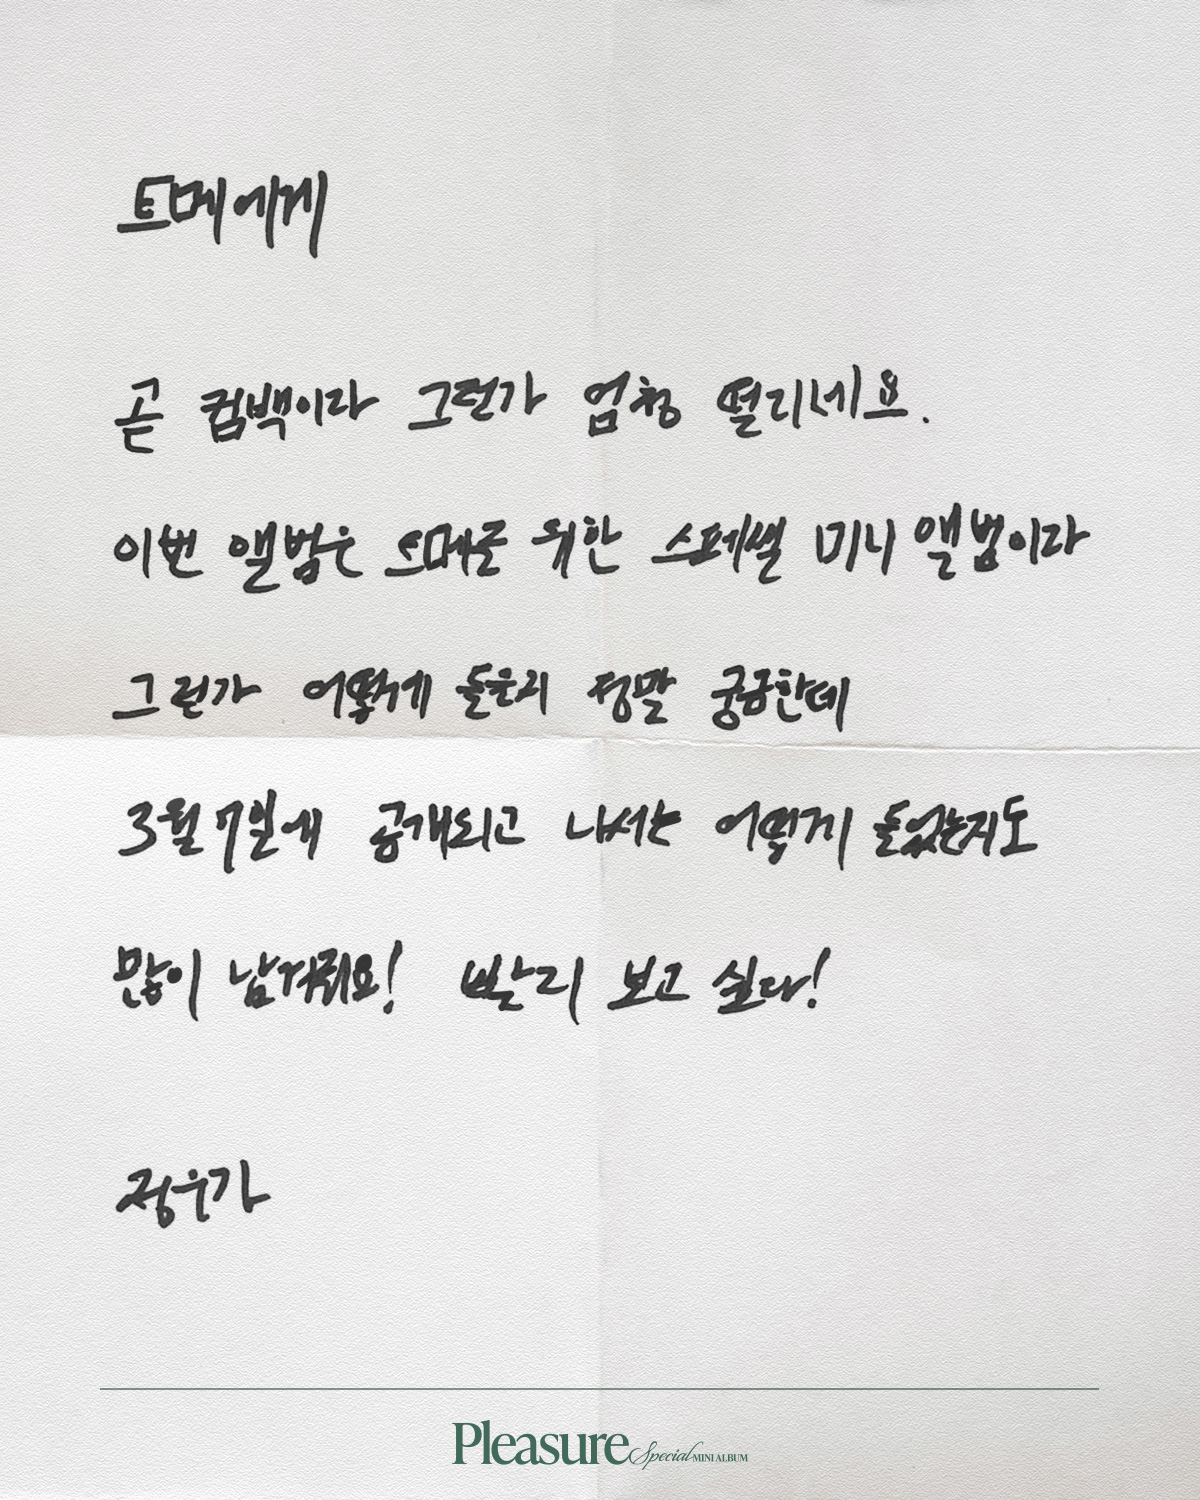 트메에게
곧 컴백이라 그런가 엄청 떨리네요.
이번 앨범은 트메를 위한 스페셜 미니 앨범이라
그런가 어떻게 들을지 정말 궁금한데
3월 7일에 공개되고 나서는 어떻게 들었는지도
많이 남겨줘요! 빨리 보고 싶다!
정우가
Pleasure Special MINI ALBUM